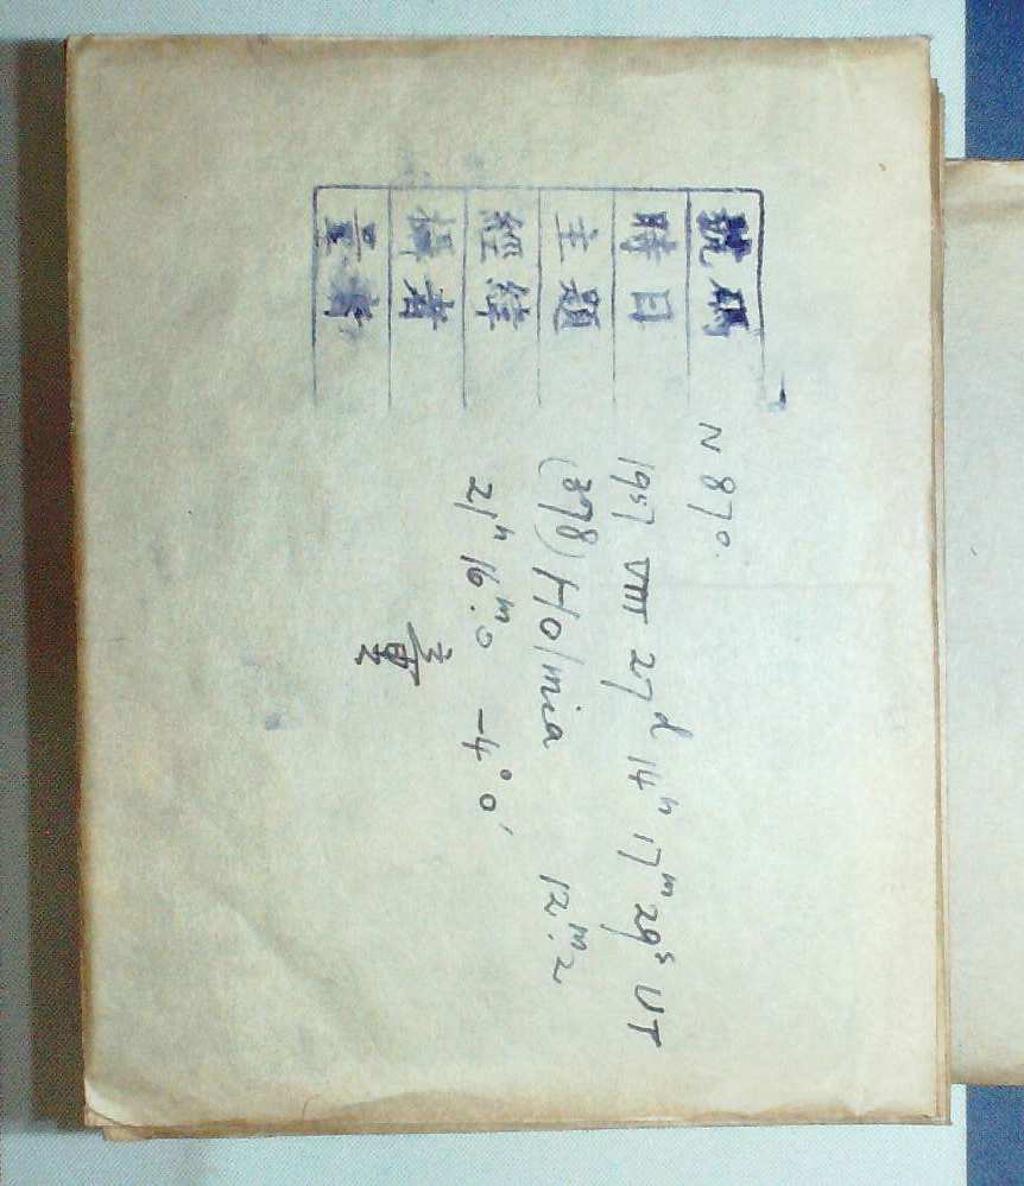 號碼 N 870.
時日 1957 VIII 27ᵈ 14ʰ 17ᵐ 29ˢ UT
主題 (378) Holmia 12ᵐ.2
經緯 21ʰ 16ᵐ.0 -4°0′
攝者